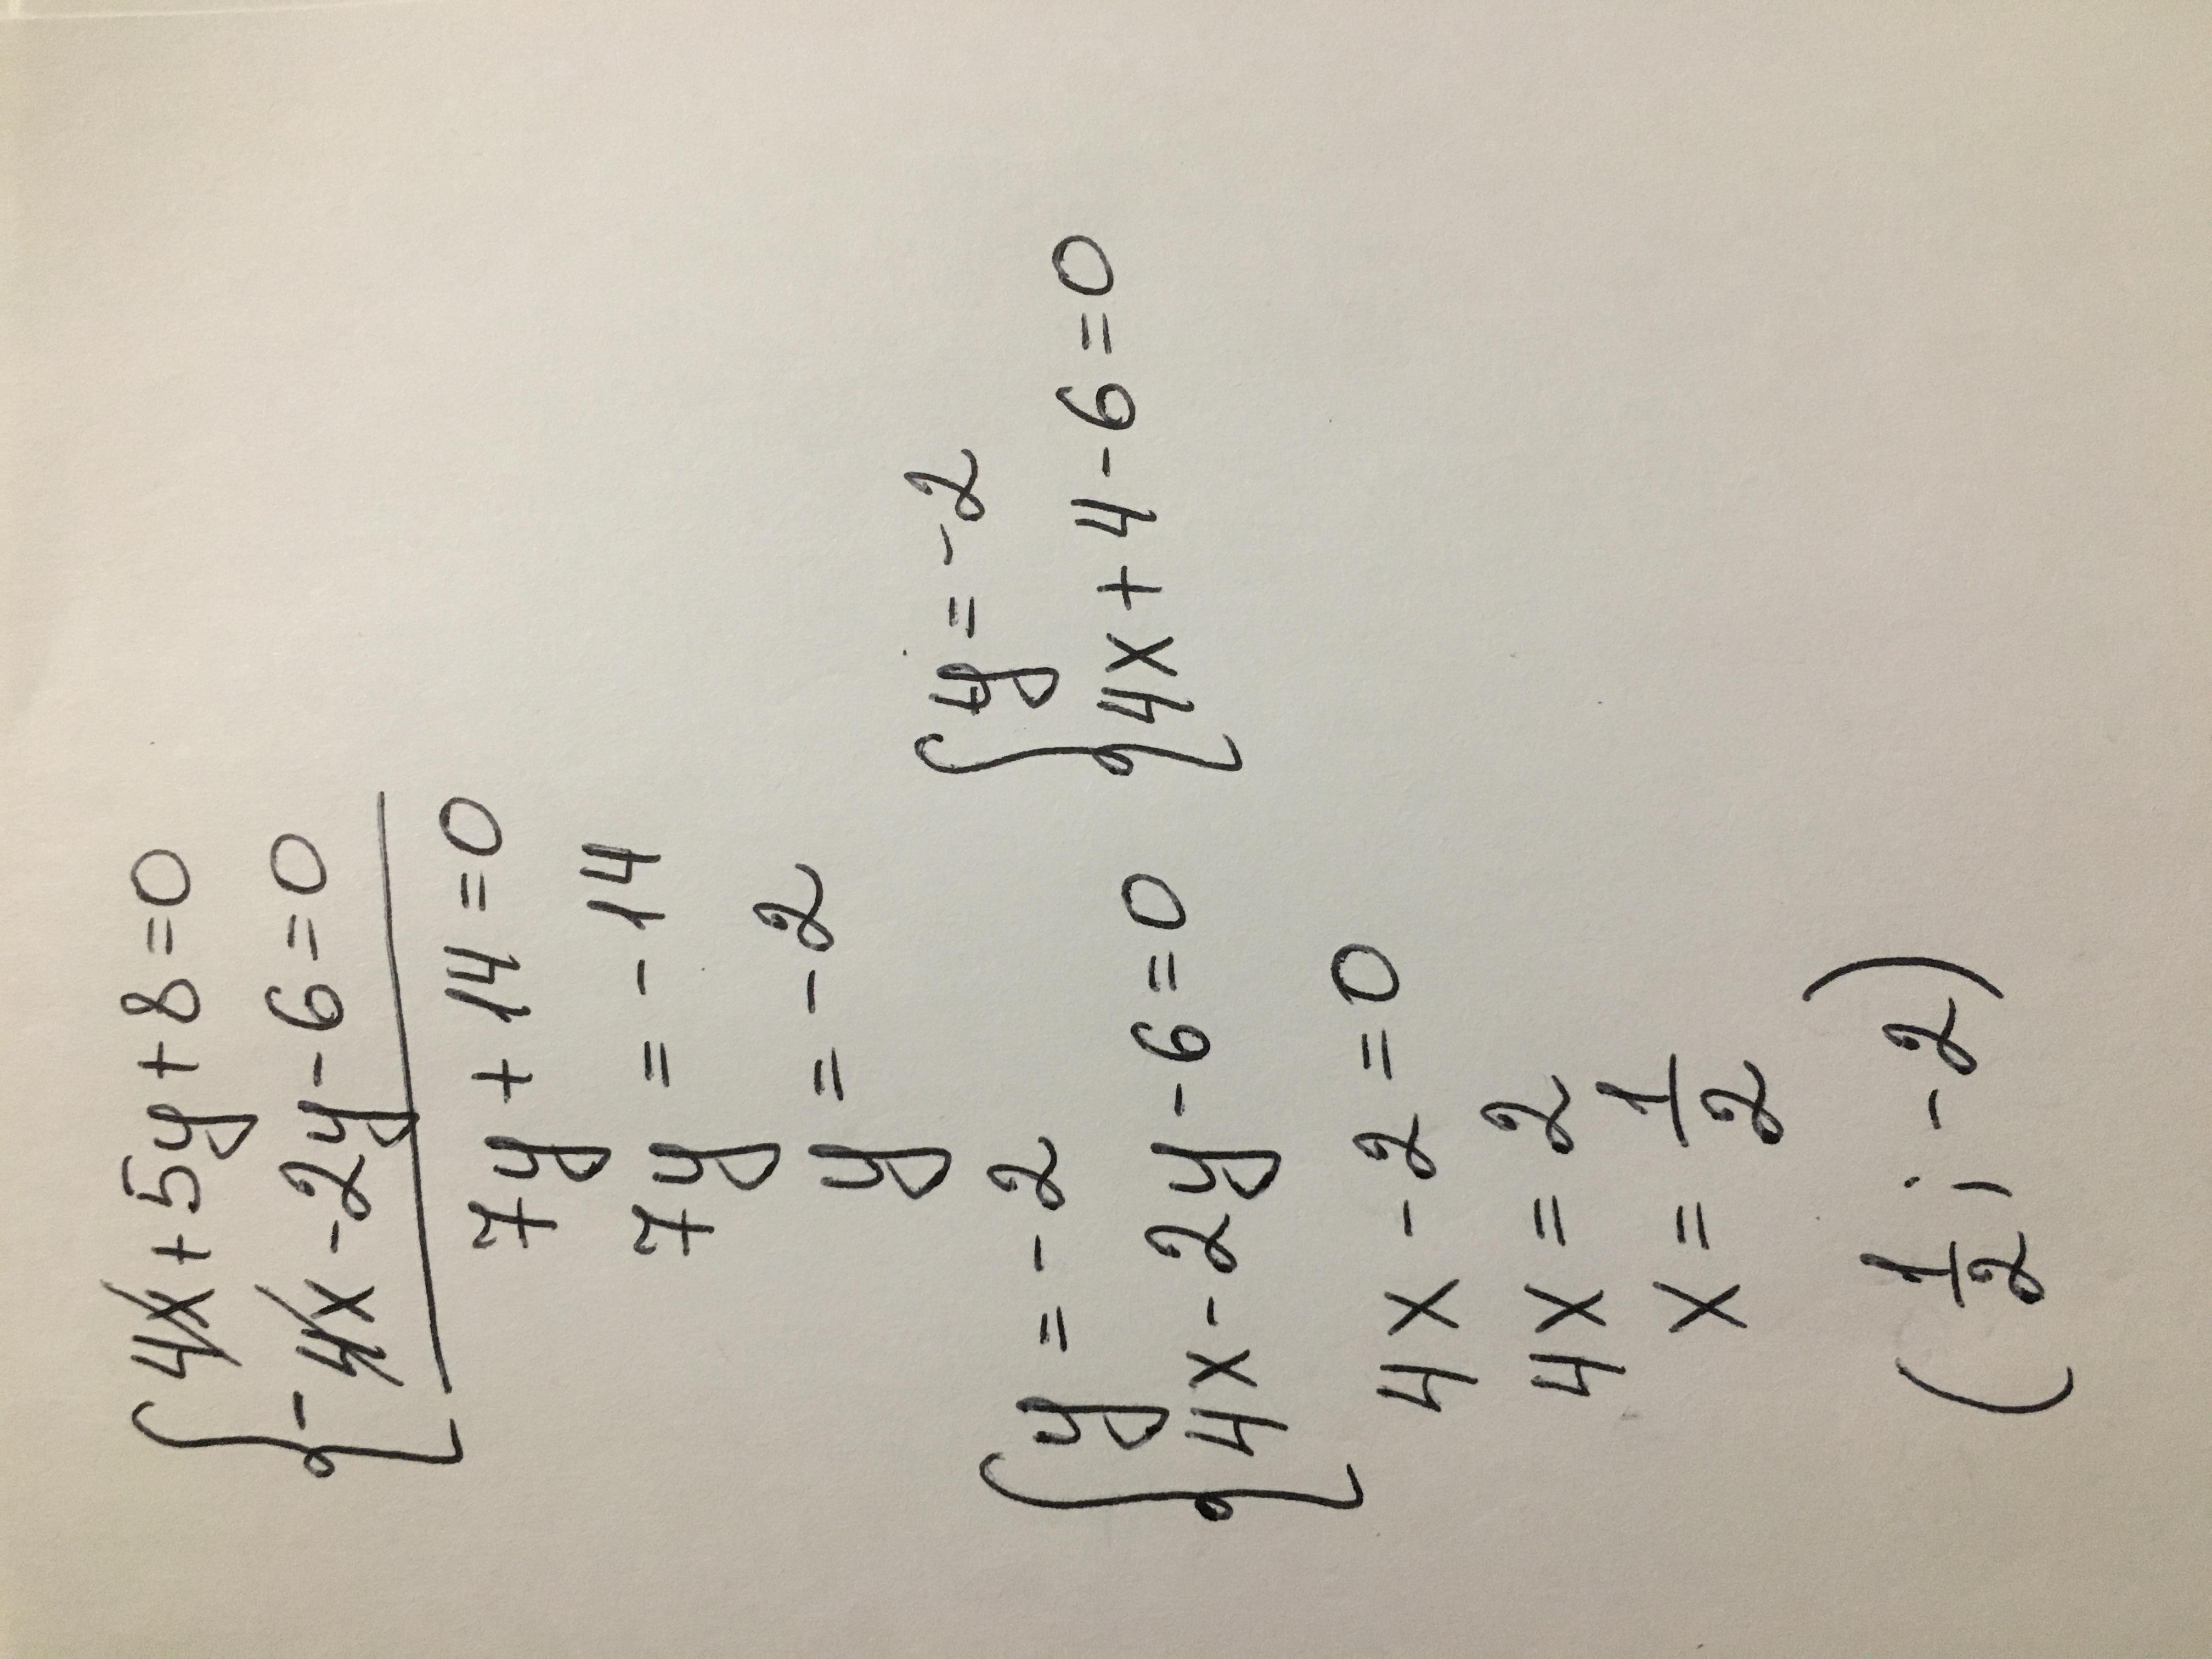 4x+5y+8=0
-4x-2y-6=0
7y+14=0
7y=-14
y=-2
y=-2
4x-2y-6=0
y=-2
4x+4-6=0
4x-2=0
4x=2
x=1/2
(1/2;-2)